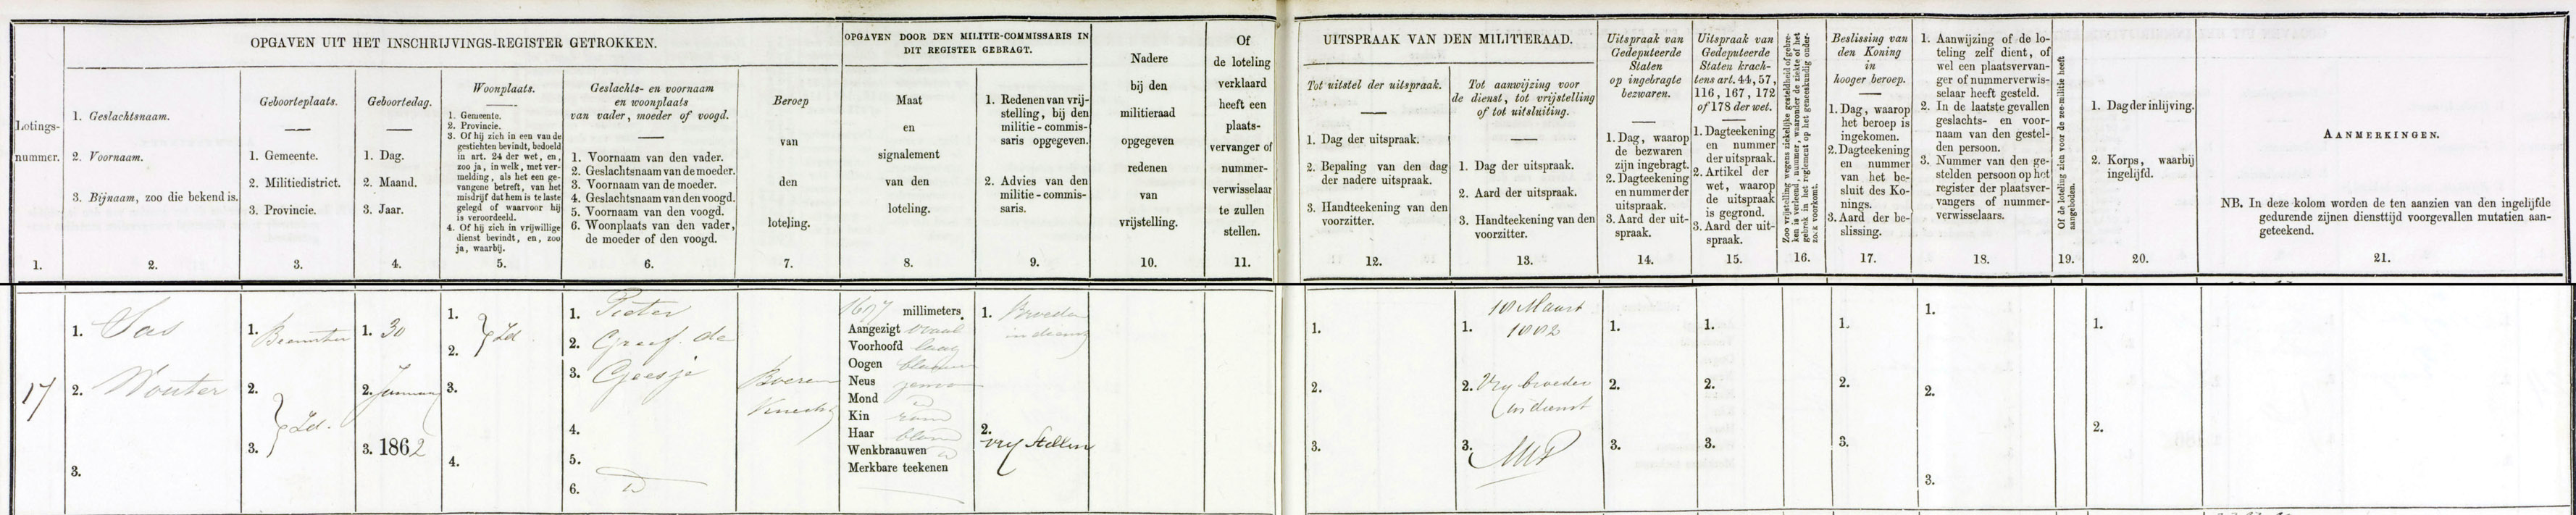 OPGAVEN UIT HET INSCHRIJVINGS-REGISTER GETROKKEN.
OPGAVEN DOOR DEN MILITIE-COMMISSARIS IN
DIT REGISTER GEBRAGT.
Lotings-
nummer.
1.
1. Geslachtsnaam.
2. Voornaam.
3. Bijnaam, zoo die bekend is.
2.
Geboorteplaats.
1. Gemeente.
2. Militiedistrict.
3. Provincie.
3.
Geboortedag.
1. Dag.
2. Maand.
3. Jaar.
4.
Woonplaats.
1. Gemeente.
2. Provincie.
3. Of hij zich in een van de
gestichten bevindt, bedoeld
in art. 24 der wet, en,
zoo ja, in welk, met ver-
melding, als het een ge-
vangene betreft, van het
misdrijf dat hem is te laste
gelegd of waarvoor hij
is veroordeeld.
4. Of hij zich in vrijwillige
dienst bevindt, en, zoo
ja, waarbij.
5.
Geslachts- en voornaam
en woonplaats
van vader, moeder of voogd.
1. Voornaam van den vader.
2. Geslachtsnaam van de moeder.
3. Voornaam van de moeder.
4. Geslachtsnaam van den voogd.
5. Voornaam van den voogd.
6. Woonplaats van den vader,
de moeder of den voogd.
6.
Beroep
van
den
loteling.
7.
Maat
en
signalement
van den
loteling.
8.
1. Redenen van vrij-
stelling, bij den
militie-commis-
saris opgegeven.
2. Advies van den
militie-commis-
saris.
9.
Nadere
bij den
militieraad
opgegeven
redenen
van
vrijstelling.
10.
Of
de loteling
verklaard
heeft een
plaats-
vervanger of
nummer-
verwisselaar
te zullen
stellen.
11.
UITSPRAAK VAN DEN MILITIERAAD.
Tot uitstel der uitspraak.
1. Dag der uitspraak.
2. Bepaling van den dag
der nadere uitspraak.
3. Handteekening van den
voorzitter.
12.
Tot aanwijzing voor
de dienst, tot vrijstelling
of tot uitsluiting.
1. Dag der uitspraak.
2. Aard der uitspraak.
3. Handteekening van den
voorzitter.
13.
Uitspraak van
Gedeputeerde
Staten
op ingebragte
bezwaren.
1. Dag, waarop
de bezwaren
zijn ingebragt.
2. Dagteekening
en nummer der
uitspraak.
3. Aard der uit-
spraak.
14.
Uitspraak van
Gedeputeerde
Staten krach-
tens art. 44, 57,
116, 167, 172
of 178 der wet.
1. Dagteekening
en nummer
der uitspraak.
2. Artikel der
wet, waarop
de uitspraak
is gegrond.
3. Aard der uit-
spraak.
15.
Zoo vrijstelling wegens ziekelijke gesteldheid of gebre-
ken is verleend, nummer, waaronder de ziekte of het
gebrek in het reglement op het geneeskundig onder-
zoek voorkomt.
16.
Beslissing van
den Koning
in
hooger beroep.
1. Dag, waarop
het beroep is
ingekomen.
2. Dagteekening
en nummer
van het be-
sluit des Ko-
nings.
3. Aard der be-
slissing.
17.
1. Aanwijzing of de lo-
teling zelf dient, of
wel een plaatsvervan-
ger of nummerverwis-
selaar heeft gesteld.
2. In de laatste gevallen
geslachts- en voor-
naam van den gestel-
den persoon.
3. Nummer van den ge-
stelden persoon op het
register der plaatsver-
vangers of nummer-
verwisselaars.
18.
Of de loteling zich voor de zee-militie heeft
aangeboden.
19.
1. Dag der inlijving.
2. Korps, waarbij
ingelijfd.
20.
AANMERKINGEN.
NB. In deze kolom worden de ten aanzien van den ingelijfde
gedurende zijnen diensttijd voorgevallen mutatien aan-
geteekend.
21.
17
1. Sas
2. Wouter
3.
1. Beemster
2.
3. } Id.
1. 30
2. Januarij
3. 1862
1.
2. } Id.
3.
4.
1. Pieter
2. Graaf. de
3. Geesje
4.
5.
6. "
Boeren
Knecht
1697 millimeters.
Aangezigt ovaal
Voorhoofd laag
Oogen blauw
Neus gewoon
Mond "
Kin rond
Haar blond
Wenkbraauwen "
Merkbare teekenen
1. Broeder
in dienst
2.
vrij Stellen
1.
2.
3.
10 Maart
1. 1882
2. Vrij broeder
in dienst
3.
1.
2.
3.
1.
2.
3.
1.
2.
3.
1.
2.
3.
1.
2.